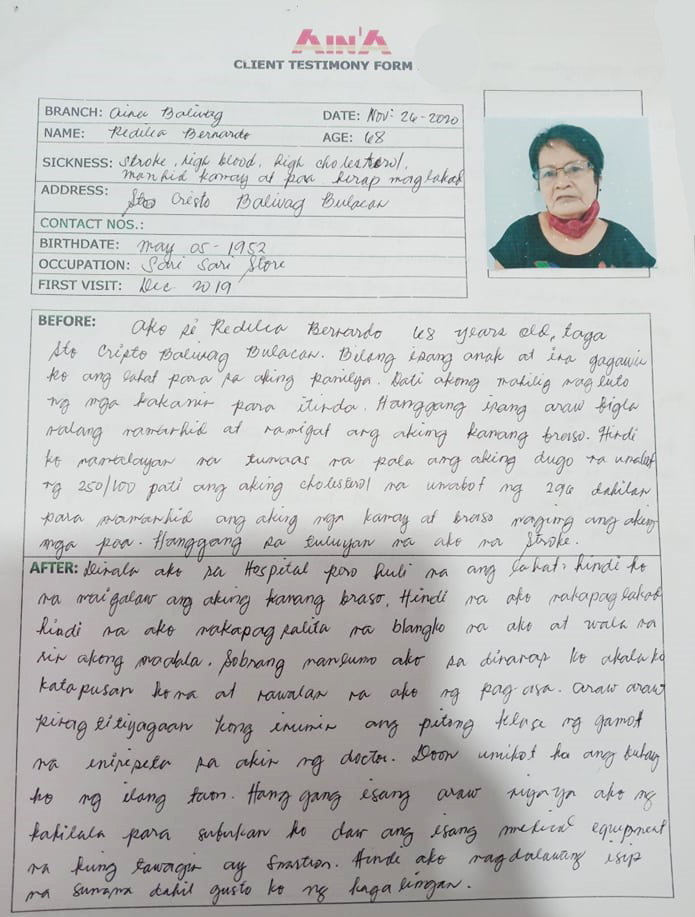 AIN'A
CLIENT TESTIMONY FORM
BRANCH: Aina Baliwag DATE: Nov. 26-2020
NAME: Redilia Bernardo AGE: 68
SICKNESS: Stroke, high blood, high cholesterol,
manhid kamay at paa hirap maglakad
ADDRESS: Sto Cristo Baliwag Bulacan
CONTACT NOS.:
BIRTHDATE: may 05-1952
OCCUPATION: Sari Sari Store
FIRST VISIT: Dec. 2019
BEFORE: Ako si Redilia Bernardo 68 years old, taga
Sto Cristo Baliwag Bulacan. Bilang isang anak at ina gagawin
ko ang lahat para sa aking pamilya. Dati akong mahilig magluto
ng mga kakanin para itinda. Hanggang isang araw bigla
nalang namanhid at namigat ang aking kanang braso. Hindi
ko namalayan na tumaas na pala ang aking dugo na umabot
ng 250/100 pati ang aking cholesterol na umabot ng 296 dahilan
para mamanhid ang aking mga kamay at braso maging ang aking
mga paa. Hanggang sa tuluyan na ako na Stroke.
AFTER: Dinala ako sa Hospital pero huli na ang lahat, hindi ko
na maigalaw ang aking kanang braso, Hindi na ako nakapaglakad
hindi na ako nakapag salita na blangko na ako at wala na
rin akong maalala. Sobrang nanlumo ako sa dinanas ko akala ko
katapusan ko na at nawalan na ako ng pag asa. araw araw
pinag titiyagaan kong inumin ang pitong klase ng gamot
na inireseta sa akin ng doctor. Doon umikot ha ang buhay
ko ng ilang taon. Hang gang isang araw niyaya ako ng
kakilala para subukan ko daw ang isang medical equipment
na kung tawagin ay Smartion. Hinde ako nagdalawang isip
na sumama dahil gusto ko ng kagalingan.